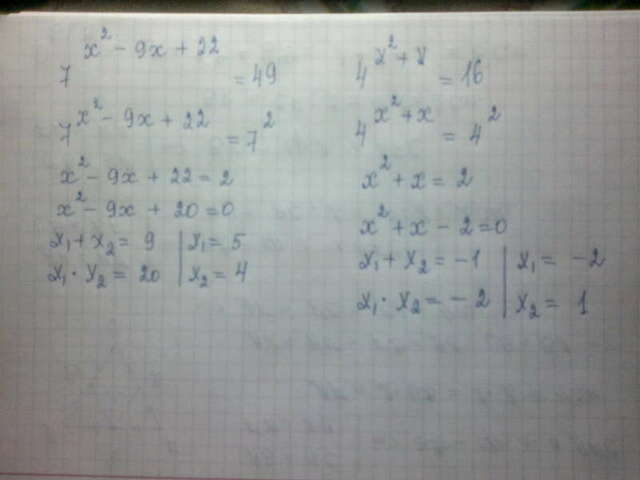 7^(x² - 9x + 22) = 49
7^(x² - 9x + 22) = 7²
x² - 9x + 22 = 2
x² - 9x + 20 = 0
x₁ + x₂ = 9 | x₁ = 5
x₁ · x₂ = 20 | x₂ = 4
4^(x² + x) = 16
4^(x² + x) = 4²
x² + x = 2
x² + x - 2 = 0
x₁ + x₂ = -1 | x₁ = -2
x₁ · x₂ = -2 | x₂ = 1